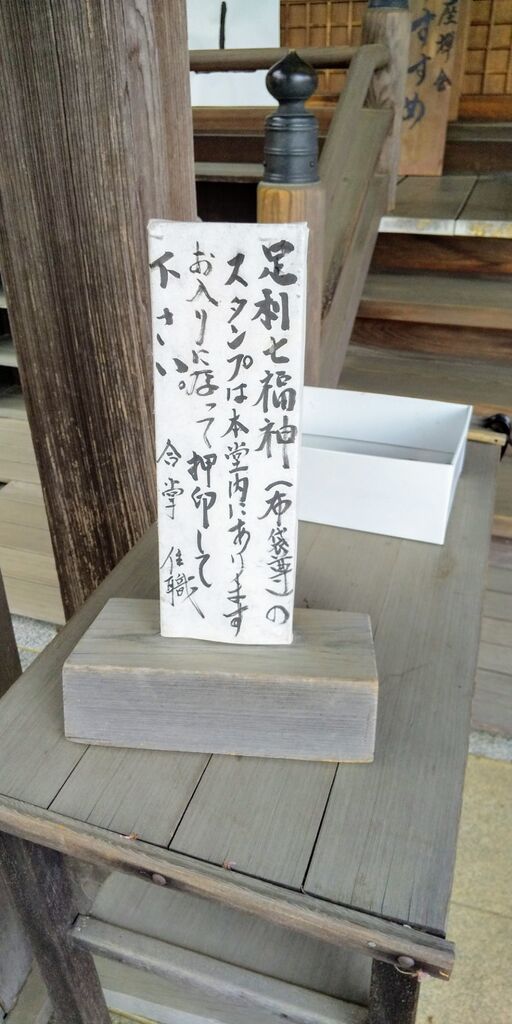 足利七福神（布袋尊）の
スタンプは本堂内にあります
お入りになって押印して
下さい。
合掌 住職
座禅会
すすめ